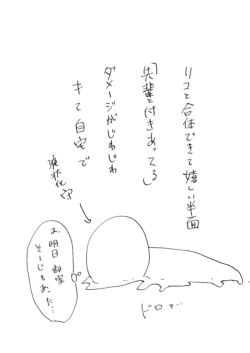 リコと合体できて嬉しい半面
「先輩と付きあってる」
ダメージがじわじわ
キて自宅で
液状化
あ、明日部室
そーじもあった…
ドロ…